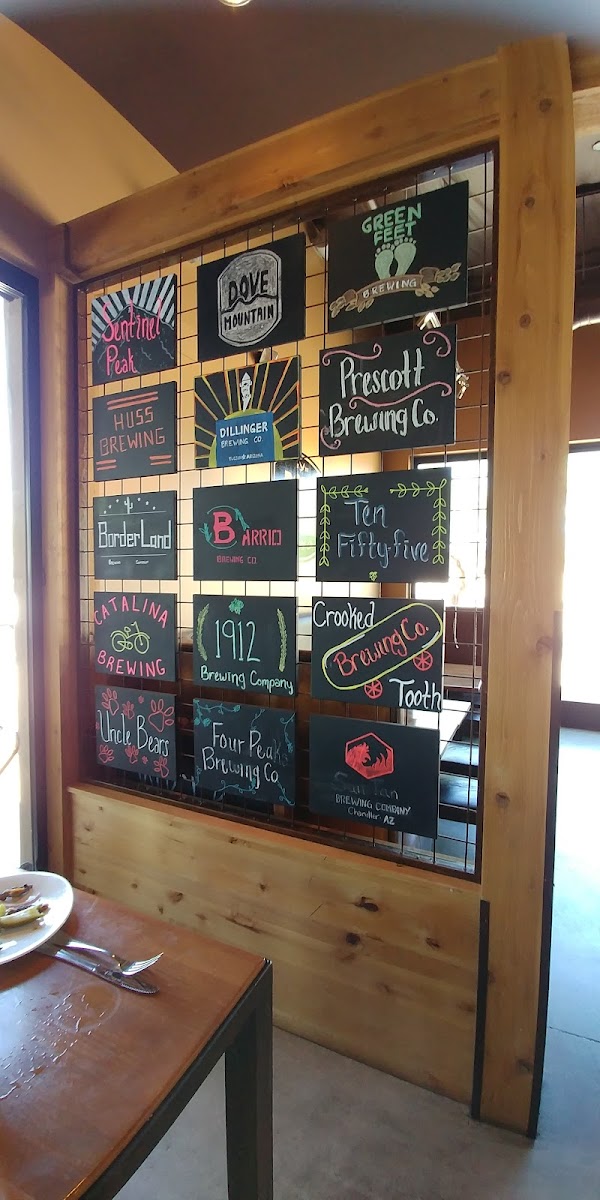 Sentinel
Peak
DOVE
MOUNTAIN
GREEN
FEET
BREWING
HUSS
BREWING
DILLINGER
BREWING CO.
TUCSON ARIZONA
Prescott
Brewing Co.
BorderLand
BARRIO
BREWING CO
Ten
Fifty-five
CATALINA
BREWING
1912
Brewing Company
Crooked
Brewing Co.
Tooth
Uncle Bears
Four Peaks
Brewing Co.
Sun Tan
BREWING COMPANY
Chandler, AZ